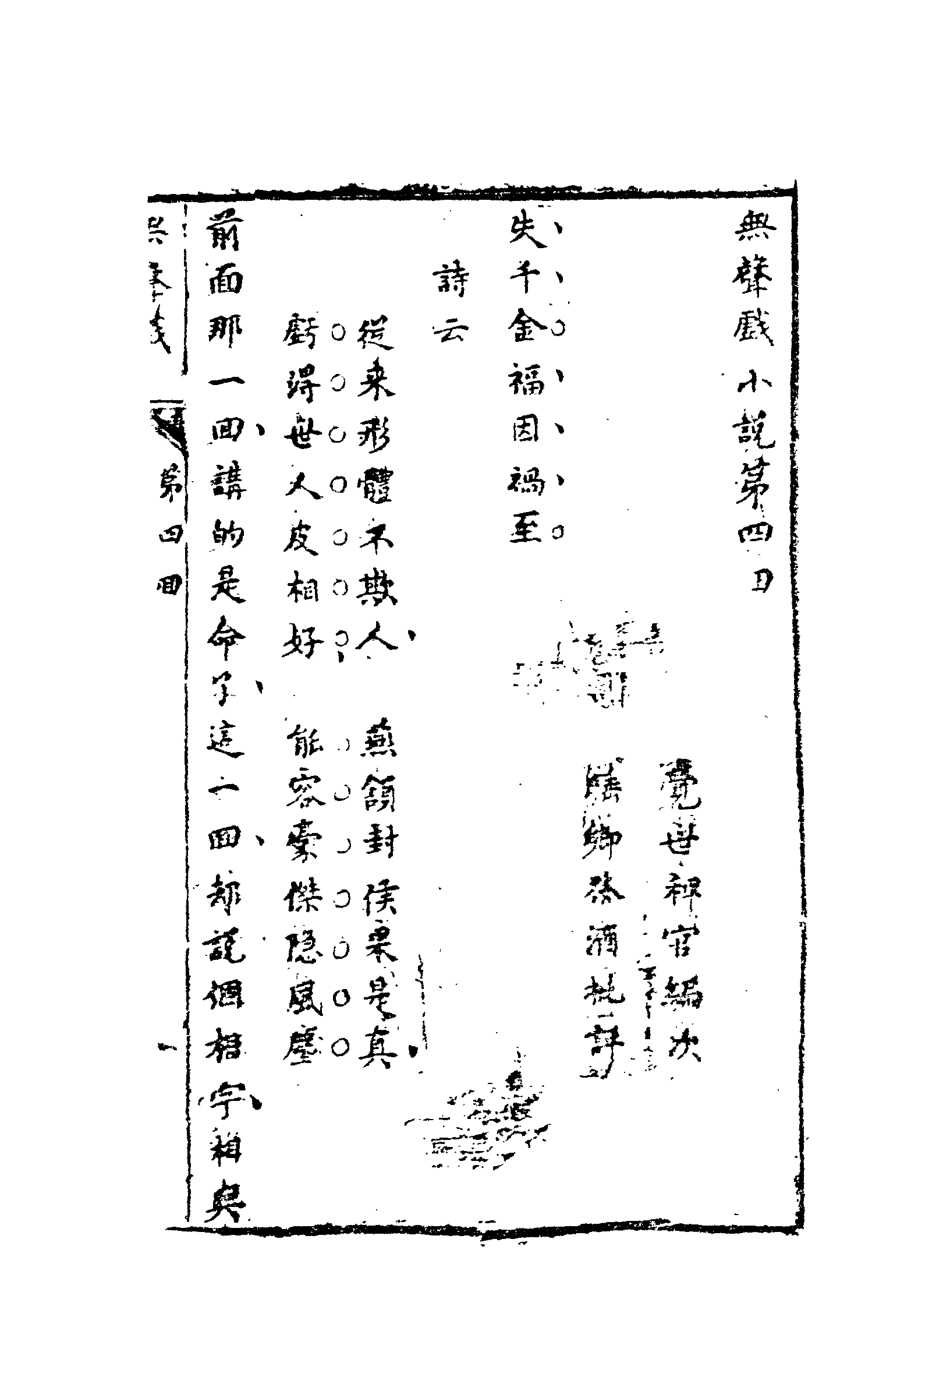 無聲戲小說第四回
覺世稗官編次
睡鄉祭酒批評
失千金福因禍至
詩云
從來形體不欺人 燕頷封侯果是真
虧得世人皮相好 能容豪傑隱風塵
前面那一回講的是命字這一回却說個相字相與
第四回